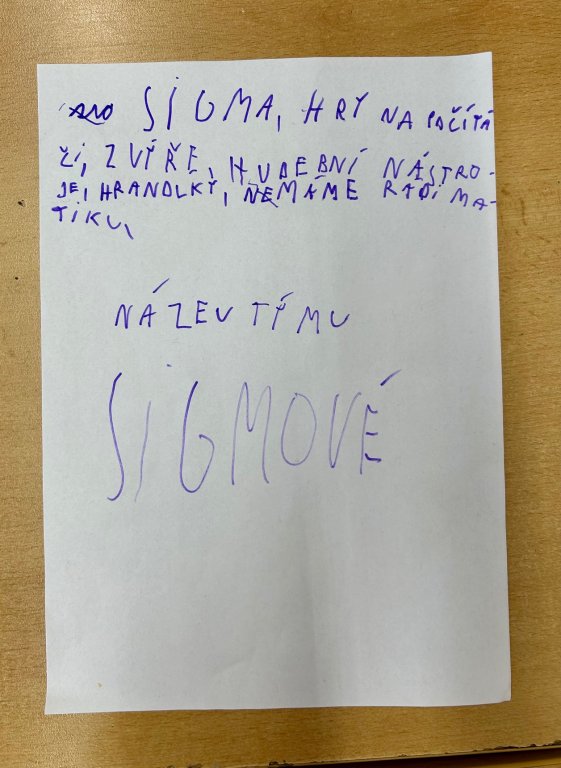 SIGMA, HRY NA POČÍTA
ČI, ZVÍŘE, HUDEBNÍ NÁSTRO-
JE, HRANOLKY, NEMÁME RÁDI MA-
TIKU,
NÁZEV TÝMU
SIGMOVÉ